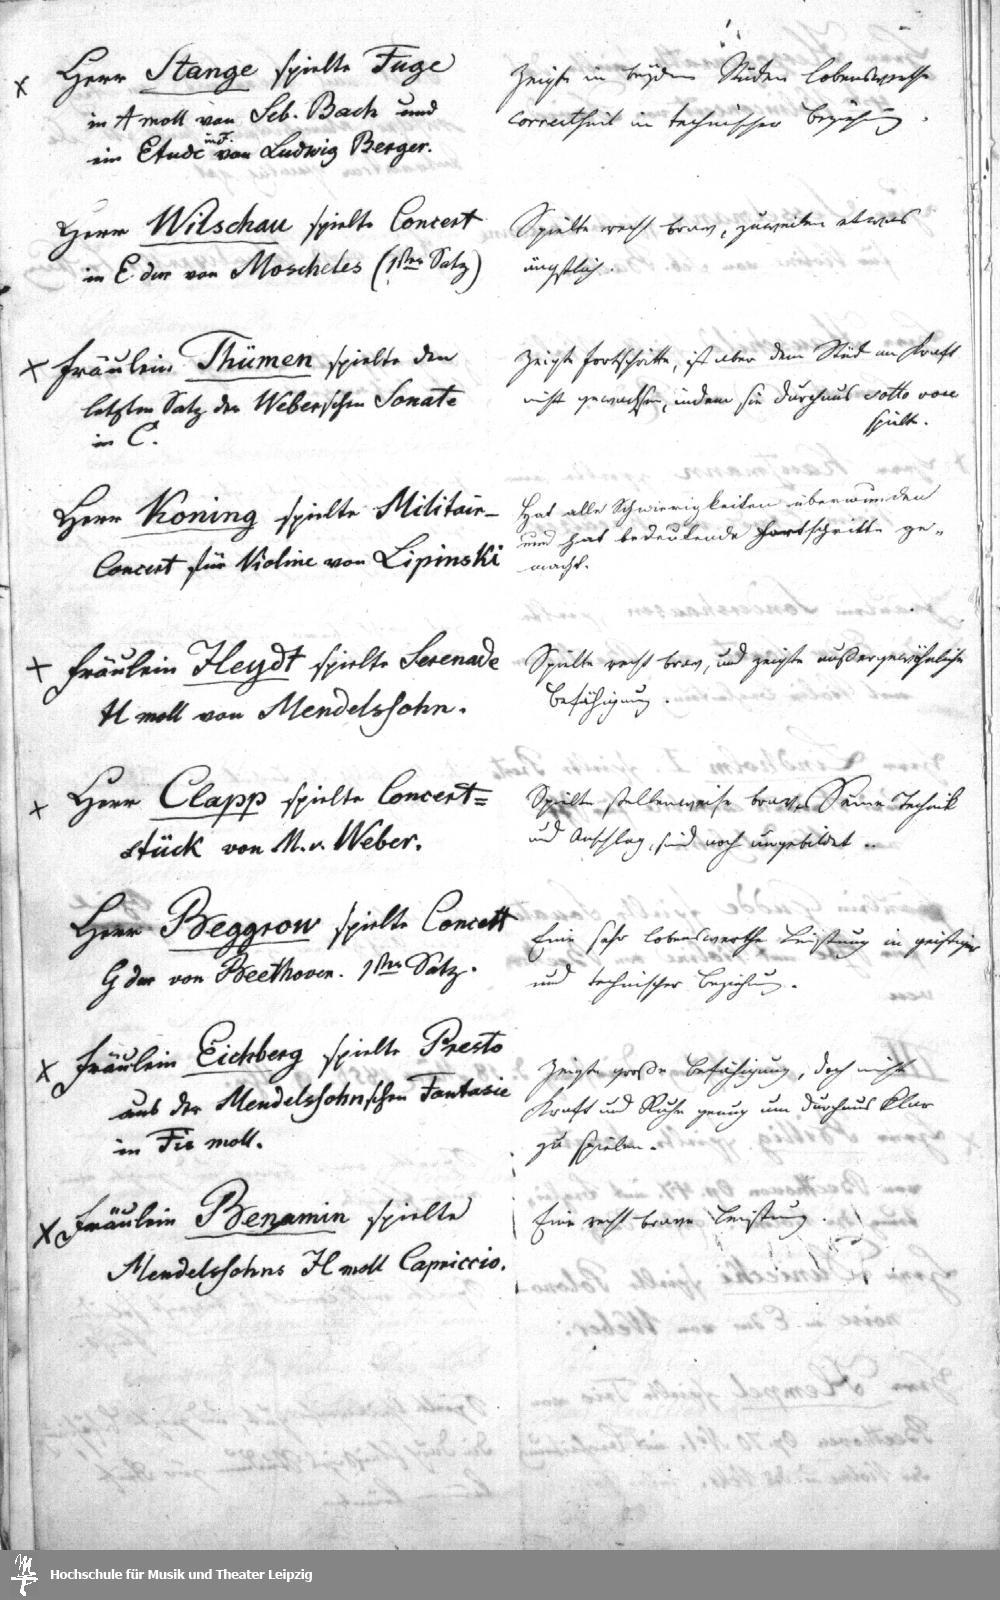 x Herr Stange spielte Fuge
in A moll von Seb. Bach und
ein Etude in F. von Ludwig Berger.
Zeigte in beyden Stücken lobenswerthe
Correctheit in technischer Beziehung.
Herr Wilschau spielte Concert
in E dur von Moscheles (1ster Satz)
Spielte recht brav, zuweilen etwas
ängstlich.
x Fräulein Thümen spielte den
letzten Satz der Weberschen Sonate
in C.
Zeigte Fortschritte, ist aber dem Stück an Kraft
nicht gewachsen, indem sie durchaus sotto voce
spielte.
Herr Koning spielte Militair-
Concert für Violine von Lipinski
Hat alle Schwierigkeiten überwunden
und hat bedeutende Fortschritte ge-
macht.
x Fräulein Heydt spielte Serenade
H moll von Mendelssohn.
Spielte recht brav, und zeigte außergewöhnliche
Befähigung.
x Herr Clapp spielte Concert=
stück von M. v. Weber.
Spielte stellenweise brav. Seine Technik
und Anschlag, sind noch ungebildet..
Herr Beggrow spielte Concert
G dur von Beethoven. 1ster Satz.
Eine sehr lobenswerthe Leistung in geistiger
und technischer Beziehung.
x Fräulein Eichberg spielte Presto
aus der Mendelssohnschen Fantasie
in Fis moll.
Zeigte große Befähigung, doch nicht
Kraft und Ruhe genug um durchaus klar
zu spielen.
x Fräulein Benamin spielte
Mendelssohns H moll Capriccio.
Eine recht brave Leistung.
Hochschule für Musik und Theater Leipzig